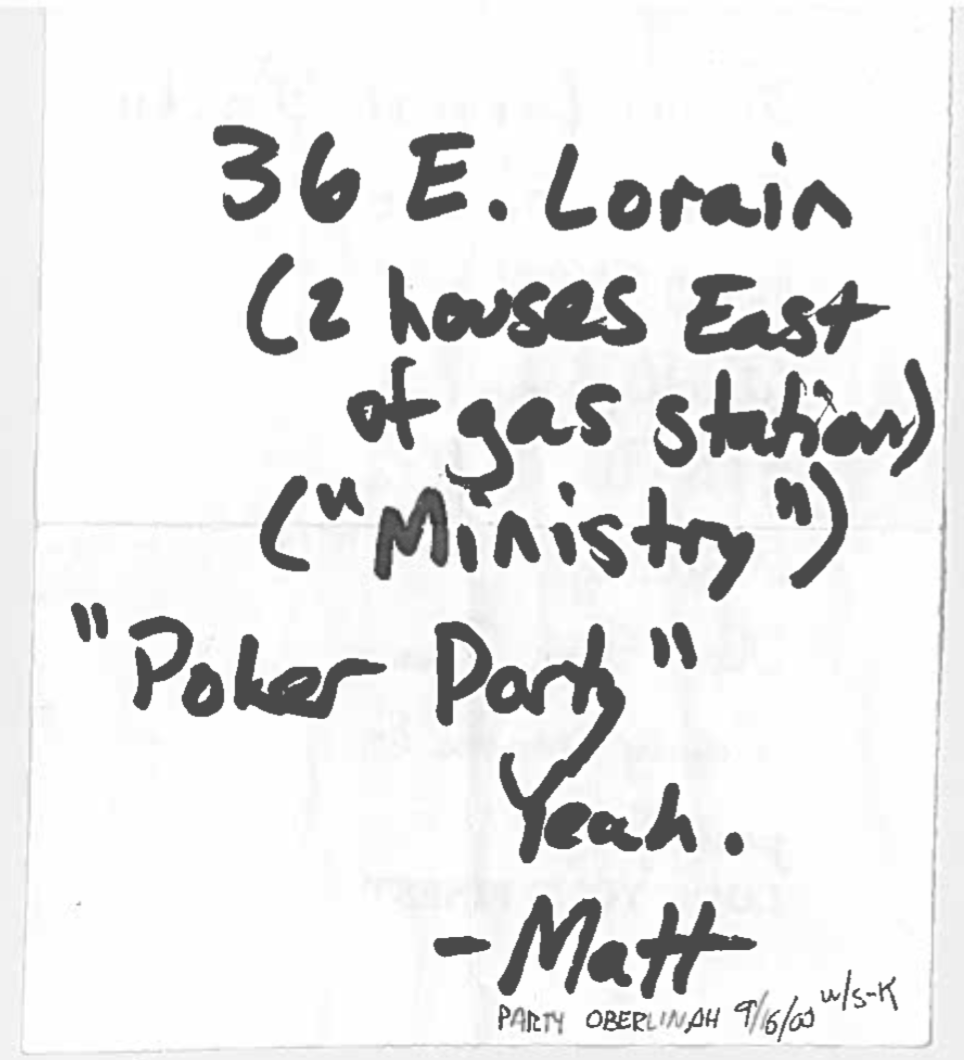 36 E. Lorain
(2 houses East
of gas station)
("Ministry")
"Poker Party"
Yeah.
-Matt
PARTY OBERLIN, OH 9/15/00 w/S-K